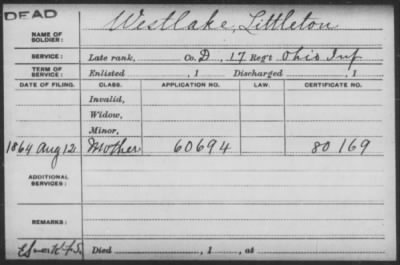 DEAD
NAME OF SOLDIER: Westlake, Littleton
SERVICE: Late rank, Co. D, 17 Reg't Ohio Inf
TERM OF SERVICE: Enlisted , 1 Discharged , 1
DATE OF FILING. CLASS. APPLICATION NO. LAW. CERTIFICATE NO.
Invalid,
Widow,
Minor,
1864 Aug 12 Mother 60694 80169
ADDITIONAL SERVICES:
REMARKS:
Died , 1 , at